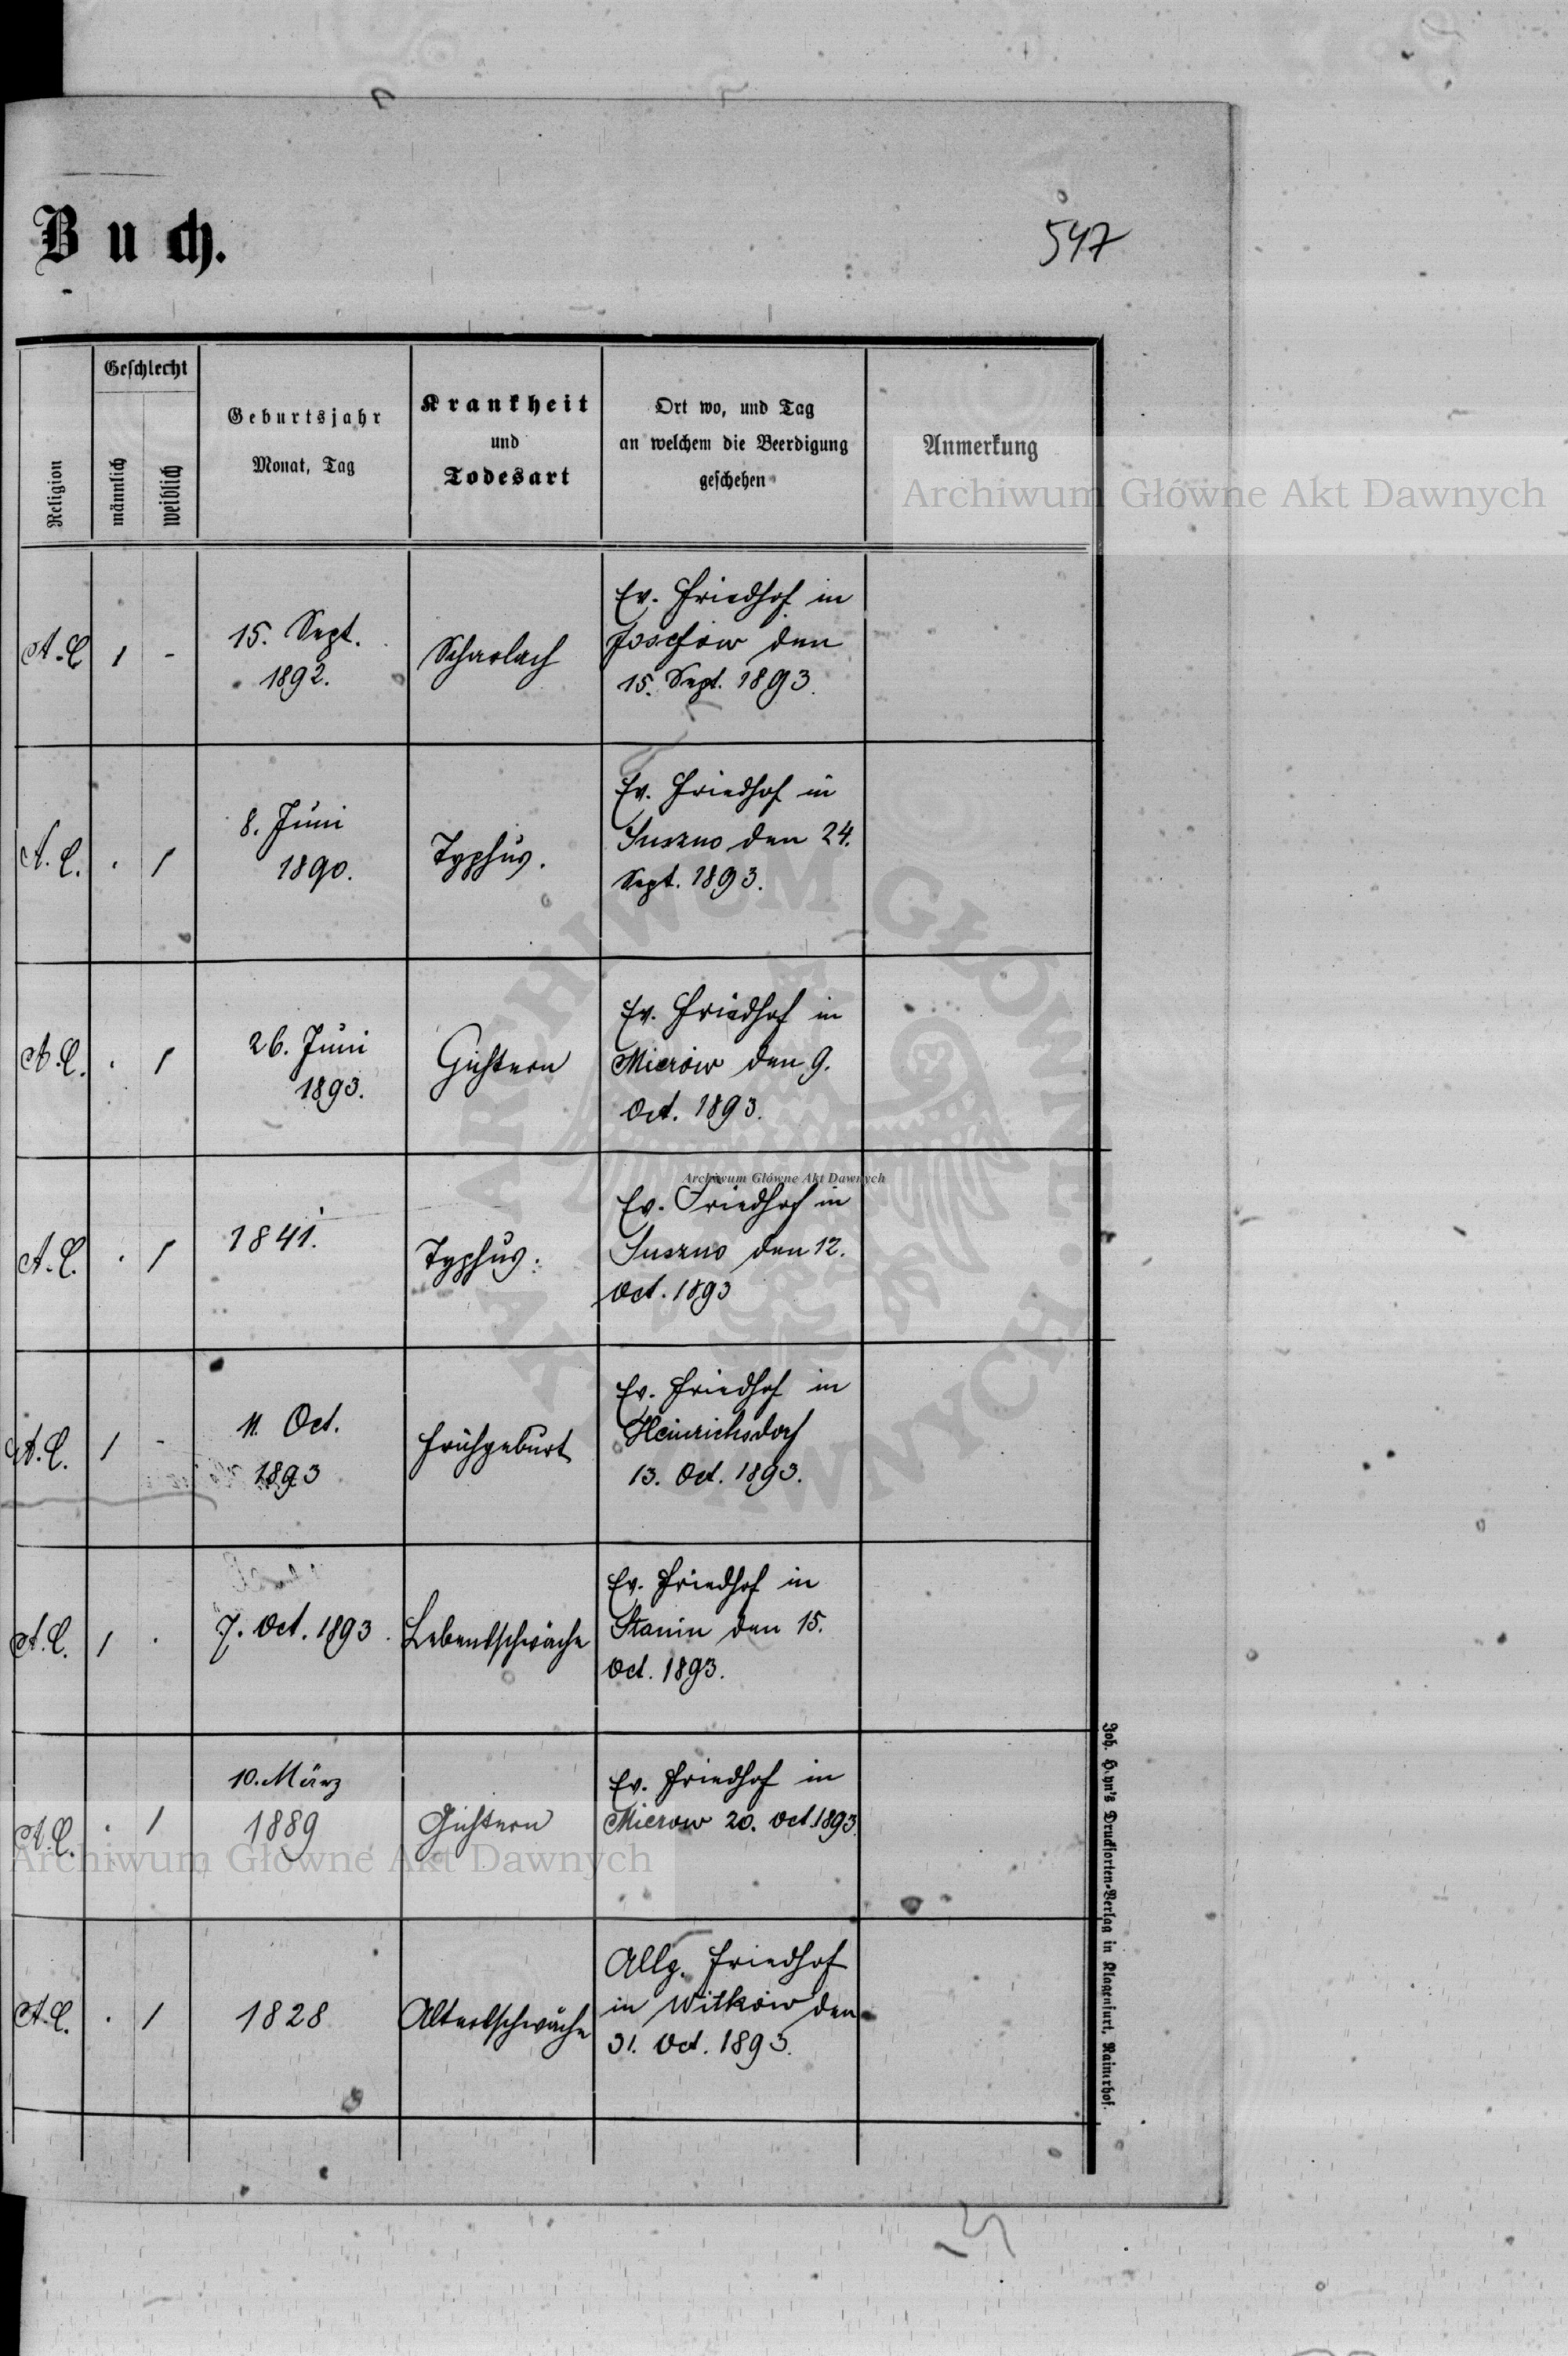 Buch.
547
Religion
Geschlecht
männlich
weiblich
Geburtsjahr
Monat, Tag
Krankheit
und
Todesart
Ort wo, und Tag
an welchem die Beerdigung
geschehen
Anmerkung
Archiwum Główne Akt Dawnych
A. C. 1 -
15. Sept.
1892.
Scharlach
Ev. Friedhof in
Josefów den
15. Sept. 1893.
A. C. . 1
8. Juni
1890.
Typhus.
Ev. Friedhof in
Suszno den 24.
Sept. 1893.
A. C. . 1
26. Juni
1893.
Gichtern
Ev. Friedhof in
Mierów den 9.
Oct. 1893.
Archiwum Główne Akt Dawnych
A. C. . 1
1841.
Typhus.
Ev. Friedhof in
Suszno den 12.
Oct. 1893
A. C. 1 -
11. Oct.
1893
Frühgeburt
Ev. Friedhof in
Heinrichsdorf
13. Oct. 1893.
A. C. 1 .
7. Oct. 1893.
Lebensschwäche
Ev. Friedhof in
Stanin den 15.
Oct. 1893.
A. C. . 1
10. März
1889
Gichtern
Ev. Friedhof in
Mierow 20. Oct. 1893.
Archiwum Główne Akt Dawnych
A. C. . 1
1828
Altersschwäche
Allg. Friedhof
in Witków den
31. Oct. 1893.
ARCHIWUM GŁÓWNE AKT DAWNYCH
Joh. Heyn's Drucksorten-Verlag in Klagenfurt, Rainerhof.